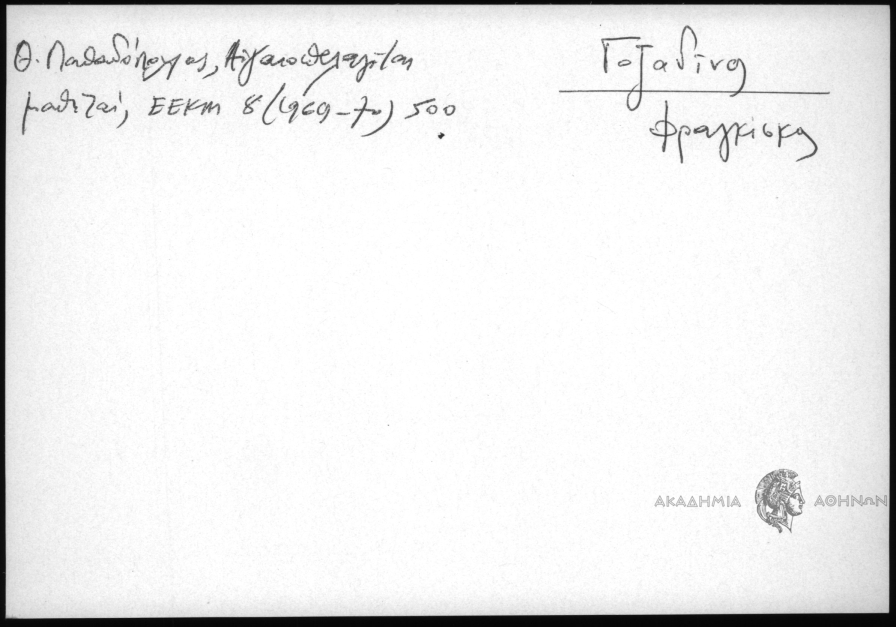 Θ. Παπαδόπουλος, Αιγαιοπελαγίται
μαθηταί, ΕΕΚΜ 8 (1969-70) 500
Γοζαδίνος
Φραγκίσκος
ΑΚΑΔΗΜΙΑ ΑΘΗΝΩΝ